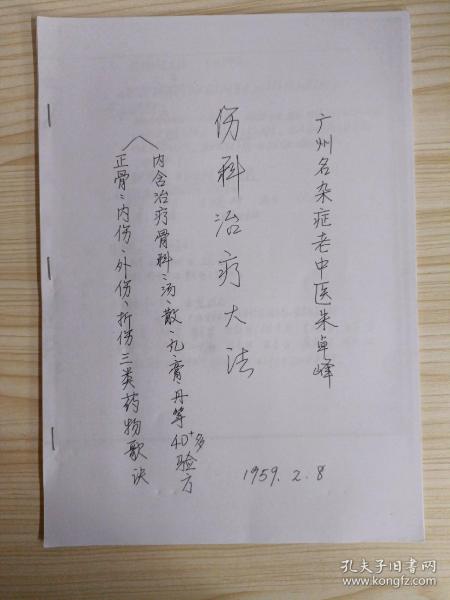 广州名杂症老中医朱卓峰
伤科治疗大法
内含治疗骨科:汤、散、丸、膏、丹等40+多验方
正骨:内伤、外伤、折伤三类药物歌诀
1959.2.8
孔夫子旧书网
www.kongfz.com